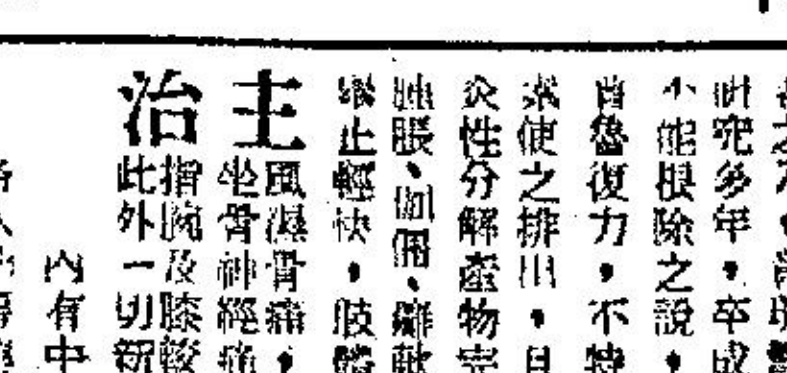 研究多年，卒成
不能根除之說，
首魯復力，不特
素使之排出，且
炎性分解產物完
腫脹、佝僂、癱軟
舉止輕快，肢體
主治
風濕骨痛，
坐骨神經痛
指腕及膝骹
此外一切新
內有中